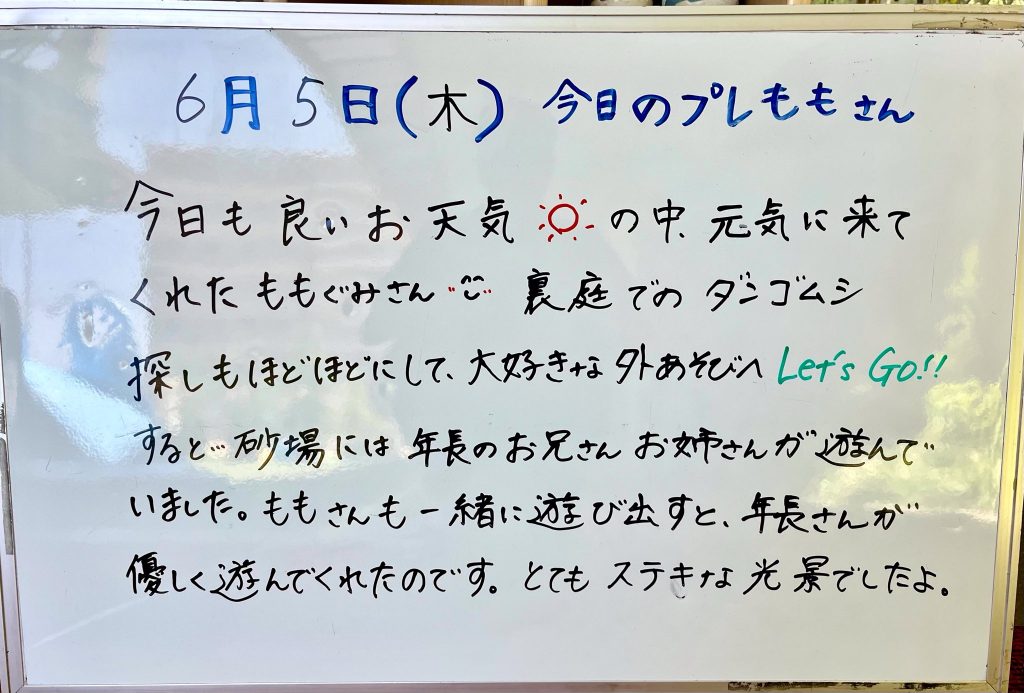 6月5日(木) 今日のプレももさん
今日も良いお天気☀の中、元気に来て
くれたももぐみさん 裏庭でのダンゴムシ
探しもほどほどにして、大好きな外あそびへ Let's Go!!
すると…砂場には年長のお兄さんお姉さんが遊んで
いました。ももさんも一緒に遊び出すと、年長さんが
優しく遊んでくれたのです。とてもステキな光景でしたよ。